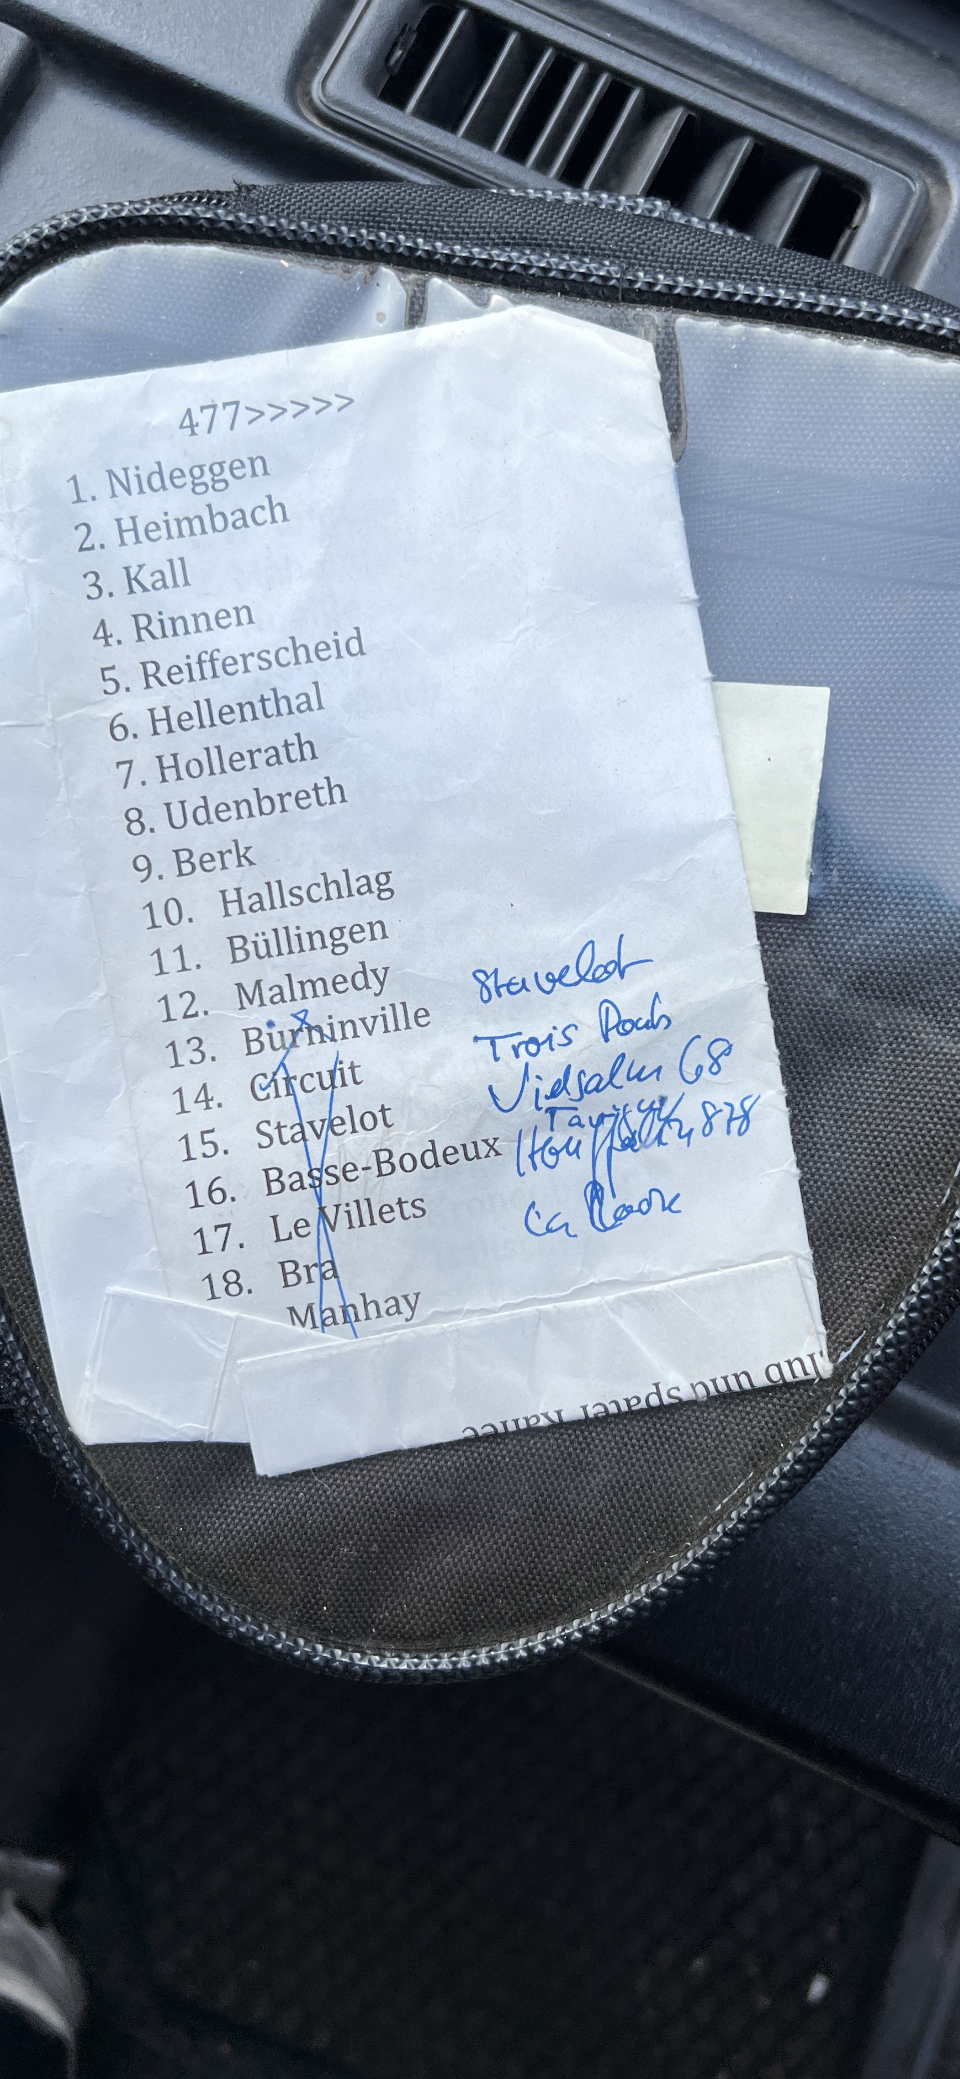 477>>>>>
1. Nideggen
2. Heimbach
3. Kall
4. Rinnen
5. Reifferscheid
6. Hellenthal
7. Hollerath
8. Udenbreth
9. Berk
10. Hallschlag
11. Büllingen
12. Malmedy
13. Burninville
14. Circuit
15. Stavelot
16. Basse-Bodeux
17. Le Villets
18. Bra
Manhay
Stavelot
Trois Ponts
Vielsalm 68
878
La Roche
und später